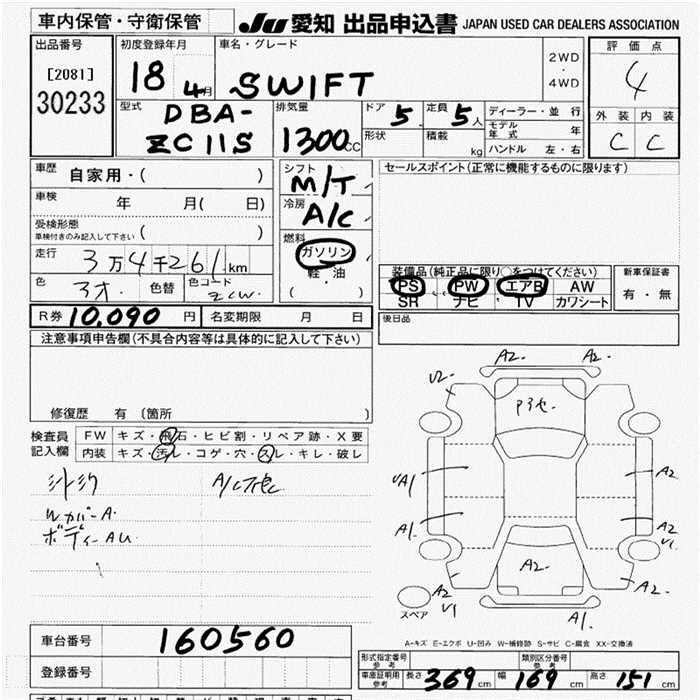 車内保管・守衛保管
JU 愛知 出品申込書 JAPAN USED CAR DEALERS ASSOCIATION
出品番号
[2081]
30233
初度登録年月
18 4月
車名・グレード
SWIFT
2WD
・
4WD
評価点
4
外装 内装
C C
型式
DBA-
ZC11S
排気量
1300cc
ドア
5
形状
定員
5人
積載
kg
ディーラー・並行
モデル年式 年
ハンドル 左・右
車歴
自家用・( )
車検
年 月( 日)
受検形態
車検付きのみ記入して下さい ( )
走行
3万4千261km
色
色替
色コード
シフト
M/T
冷房
A/C
燃料
ガソリン
・
軽・油
・
( )
セールスポイント(正常に機能するものに限ります)
装備品(純正品に限り○をつけてください)
PS PW エアB AW
SR ナビ TV カワシート
新車保証書
有・無
R券 10,090円
名変期限 月 日
後日品
注意事項申告欄(不具合内容等は具体的に記入して下さい)
修復歴 有 〔箇所 〕
検査員
記入欄
FW キズ・飛石・ヒビ割・リペア跡・X要
内装 キズ・汚レ・コゲ・穴・スレ・キレ・破レ
Wカバー A.
ボディー AU
A2. A2.
U2.
A1.
A2
A2
A2.
A2
A2.
A1.
スペア
A-キズ E-エクボ U-凹み W-補修跡 S-サビ C-腐食 XX-交換済
車台番号
160560
登録番号
形式指定番号
参考
類別区分番号
参考
車庫証明用
参考
長さ 369cm 幅 169cm 高さ 151cm